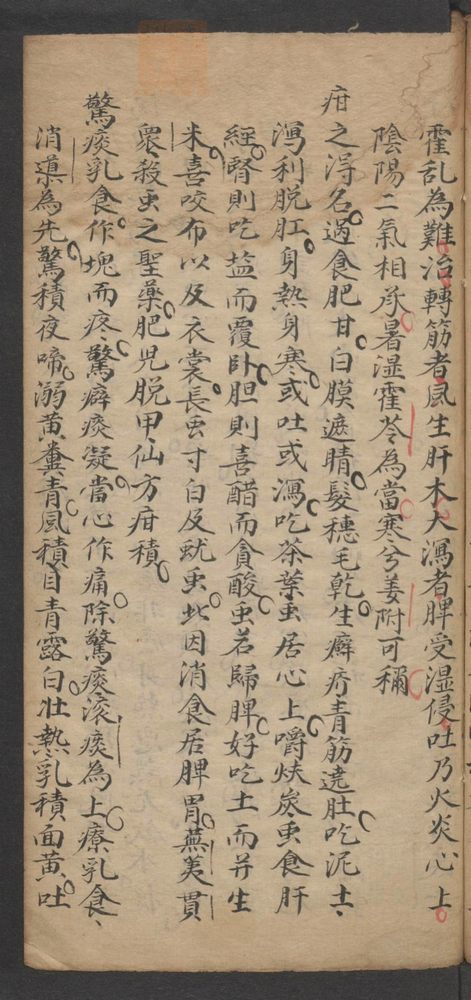 霍乱為難治轉筋者風生肝木大瀉者脾受湿侵吐乃火炎心上
陰陽二氣相承暑湿霍苓為當寒兮姜附可稱
疳之淂名過食肥甘白膜遮睛髮穗毛乾生癖疥青筋遶肚吃泥土
瀉利脱肛身熱身寒或吐或瀉吃茶葉虫居心上嚼炭虫食肝
經腎則吃盐而覆卧胆則喜醋而貪酸虫若歸脾好吃土而并生
米喜咬布以及衣裳長虫寸白及蚘虫此因消食居脾胃蕪荑貫
眾殺虫之聖藥肥児脱甲仙方疳積
驚痰乳食作塊而疼驚癖痰凝當心作痛除驚痰滚痰為上療乳食
消導為先驚積夜啼溺黄糞青風積目青露白壮熱乳積面黄吐